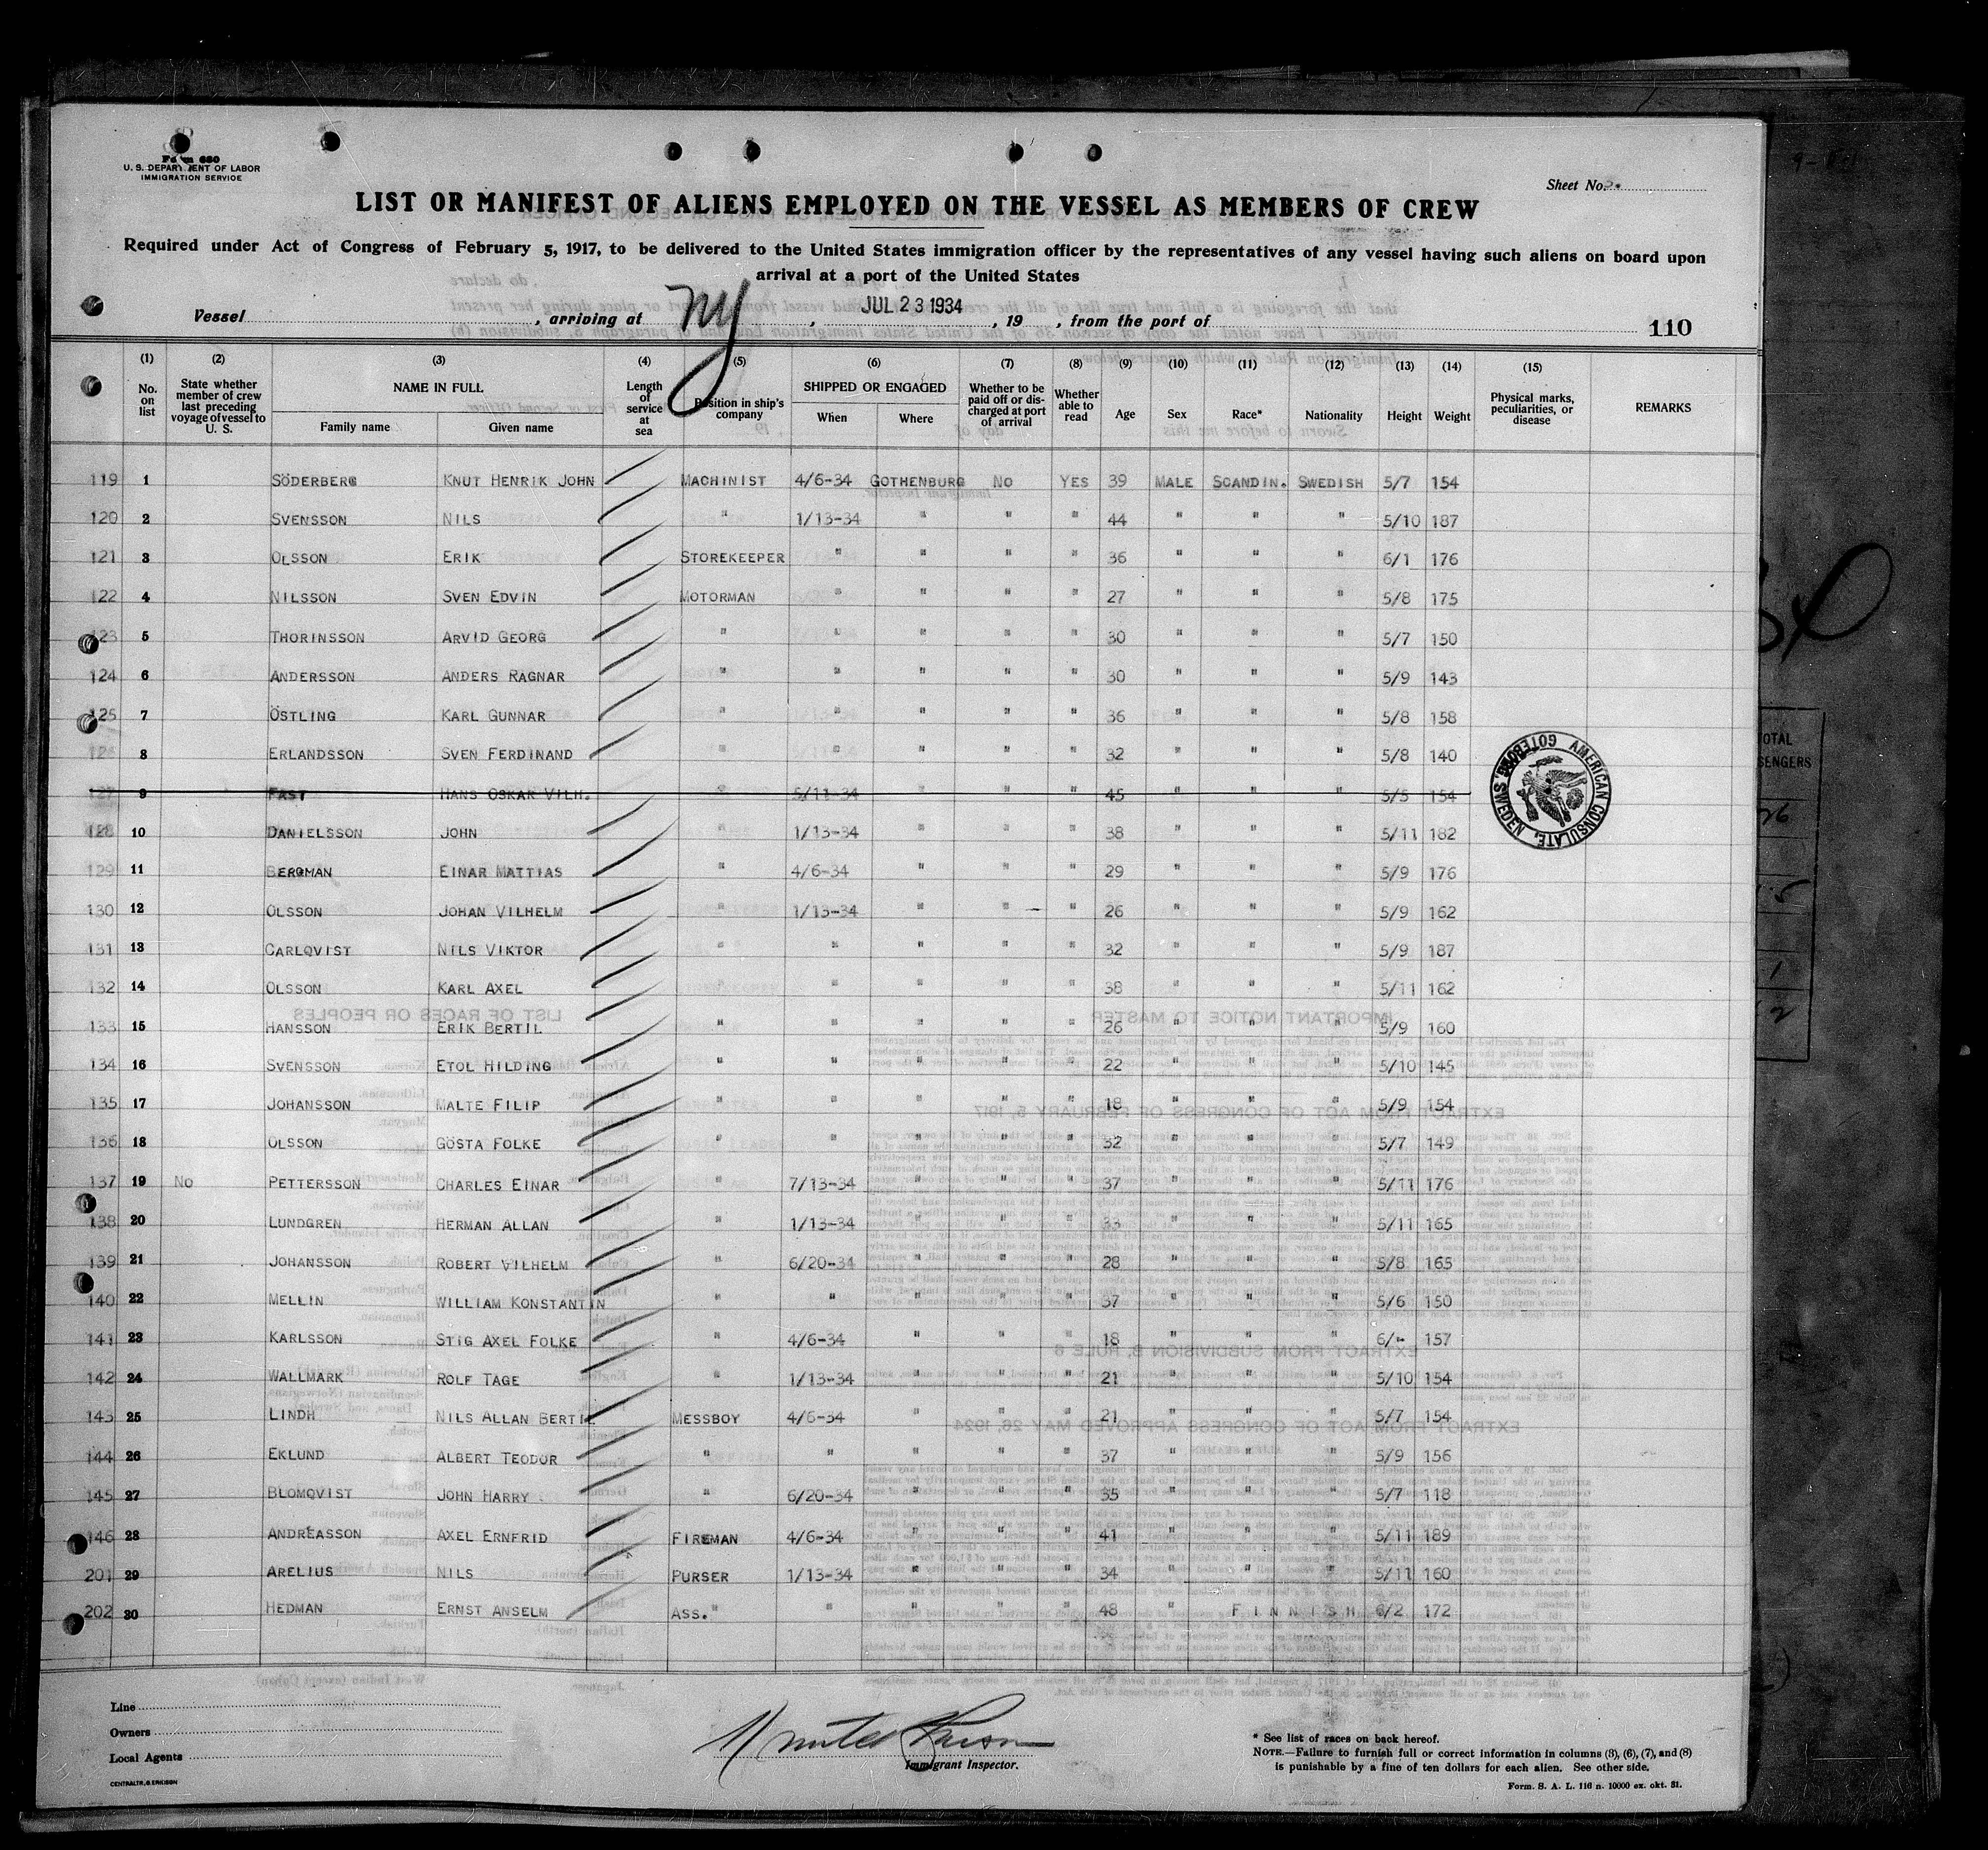 Form 680
U. S. DEPARTMENT OF LABOR
IMMIGRATION SERVICE
Sheet No.
LIST OR MANIFEST OF ALIENS EMPLOYED ON THE VESSEL AS MEMBERS OF CREW
Required under Act of Congress of February 5, 1917, to be delivered to the United States immigration officer by the representatives of any vessel having such aliens on board upon
arrival at a port of the United States
Vessel , arriving at NY , JUL 23 1934 , 19 , from the port of 110
(1) (2) (3) (4) (5) (6) (7) (8) (9) (10) (11) (12) (13) (14) (15)
No. on list State whether member of crew last preceding voyage of vessel to U. S. NAME IN FULL Family name Given name Length of service at sea Position in ship's company SHIPPED OR ENGAGED When Where Whether to be paid off or discharged at port of arrival Whether able to read Age Sex Race* Nationality Height Weight Physical marks, peculiarities, or disease REMARKS
119 1 SÖDERBERG KNUT HENRIK JOHN MACHINIST 4/6-34 GOTHENBURG NO YES 39 MALE SCANDIN. SWEDISH 5/7 154
120 2 SVENSSON NILS " 1/13-34 " " " 44 " " " 5/10 187
121 3 OLSSON ERIK STOREKEEPER " " " " 36 " " " 6/1 176
122 4 NILSSON SVEN EDVIN MOTORMAN " " " " 27 " " " 5/8 175
123 5 THORINSSON ARVID GEORG " " " " " 30 " " " 5/7 150
124 6 ANDERSSON ANDERS RAGNAR " " " " " 30 " " " 5/9 143
125 7 ÖSTLING KARL GUNNAR " " " " " 36 " " " 5/8 158
126 8 ERLANDSSON SVEN FERDINAND " " " " " 32 " " " 5/8 140
127 9 FAST HANS OSKAR VILH. " 5/11-34 " " " 45 " " " 5/5 154
128 10 DANIELSSON JOHN " 1/13-34 " " " 38 " " " 5/11 182
129 11 BERGMAN EINAR MATTIAS " 4/6-34 " " " 29 " " " 5/9 176
130 12 OLSSON JOHAN VILHELM " 1/13-34 " " " 26 " " " 5/9 162
131 13 CARLQVIST NILS VIKTOR " " " " " 32 " " " 5/9 187
132 14 OLSSON KARL AXEL " " " " " 38 " " " 5/11 162
133 15 HANSSON ERIK BERTIL " " " " " 26 " " " 5/9 160
134 16 SVENSSON ETOL HILDING " " " " " 22 " " " 5/10 145
135 17 JOHANSSON MALTE FILIP " " " " " 18 " " " 5/9 154
136 18 OLSSON GÖSTA FOLKE " " " " " 32 " " " 5/7 149
137 19 NO PETTERSSON CHARLES EINAR " 7/13-34 " " " 37 " " " 5/11 176
138 20 LUNDGREN HERMAN ALLAN " 1/13-34 " " " 33 " " " 5/11 165
139 21 JOHANSSON ROBERT VILHELM " 6/20-34 " " " 28 " " " 5/8 165
140 22 MELLIN WILLIAM KONSTANTIN " " " " " 37 " " " 5/6 150
141 23 KARLSSON STIG AXEL FOLKE " 4/6-34 " " " 18 " " " 6/- 157
142 24 WALLMARK ROLF TAGE " 1/13-34 " " " 21 " " " 5/10 154
143 25 LINDH NILS ALLAN BERTIL MESSBOY 4/6-34 " " " 21 " " " 5/7 154
144 26 EKLUND ALBERT TEODOR " " " " " 37 " " " 5/9 156
145 27 BLOMQVIST JOHN HARRY " 6/20-34 " " " 35 " " " 5/7 118
146 28 ANDREASSON AXEL ERNFRID FIREMAN 4/6-34 " " " 41 " " " 5/11 189
201 29 ARELIUS NILS PURSER 1/13-34 " " " 34 " " " 5/11 160
202 30 HEDMAN ERNST ANSELM ASS. " " " " " 48 " FINNISH 6/2 172
AMERICAN CONSULATE, GOTEBORG, SWEDEN.
TOTAL
Line
Owners
Local Agents
CENTRALTR., G. ERIKSON
Immigrant Inspector.
* See list of races on back hereof.
NOTE.—Failure to furnish full or correct information in columns (3), (6), (7), and (8)
is punishable by a fine of ten dollars for each alien. See other side.
Form. S. A. L. 116 n. 10000 ex. okt. 31.